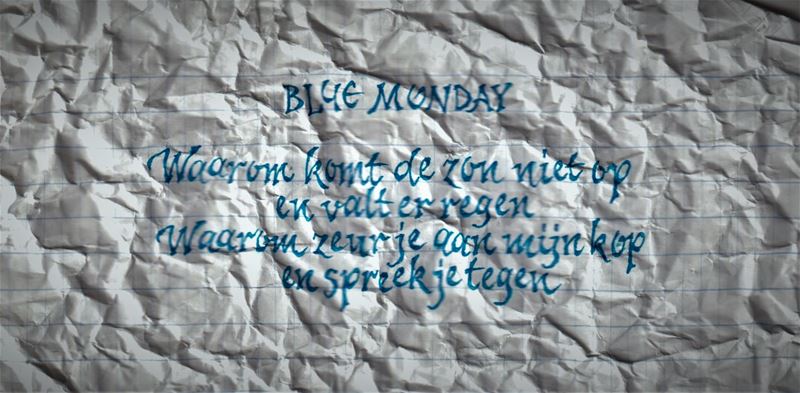 BLUE MONDAY
Waarom komt de zon niet op
en valt er regen
Waarom zeur je aan mijn kop
en spreek je tegen